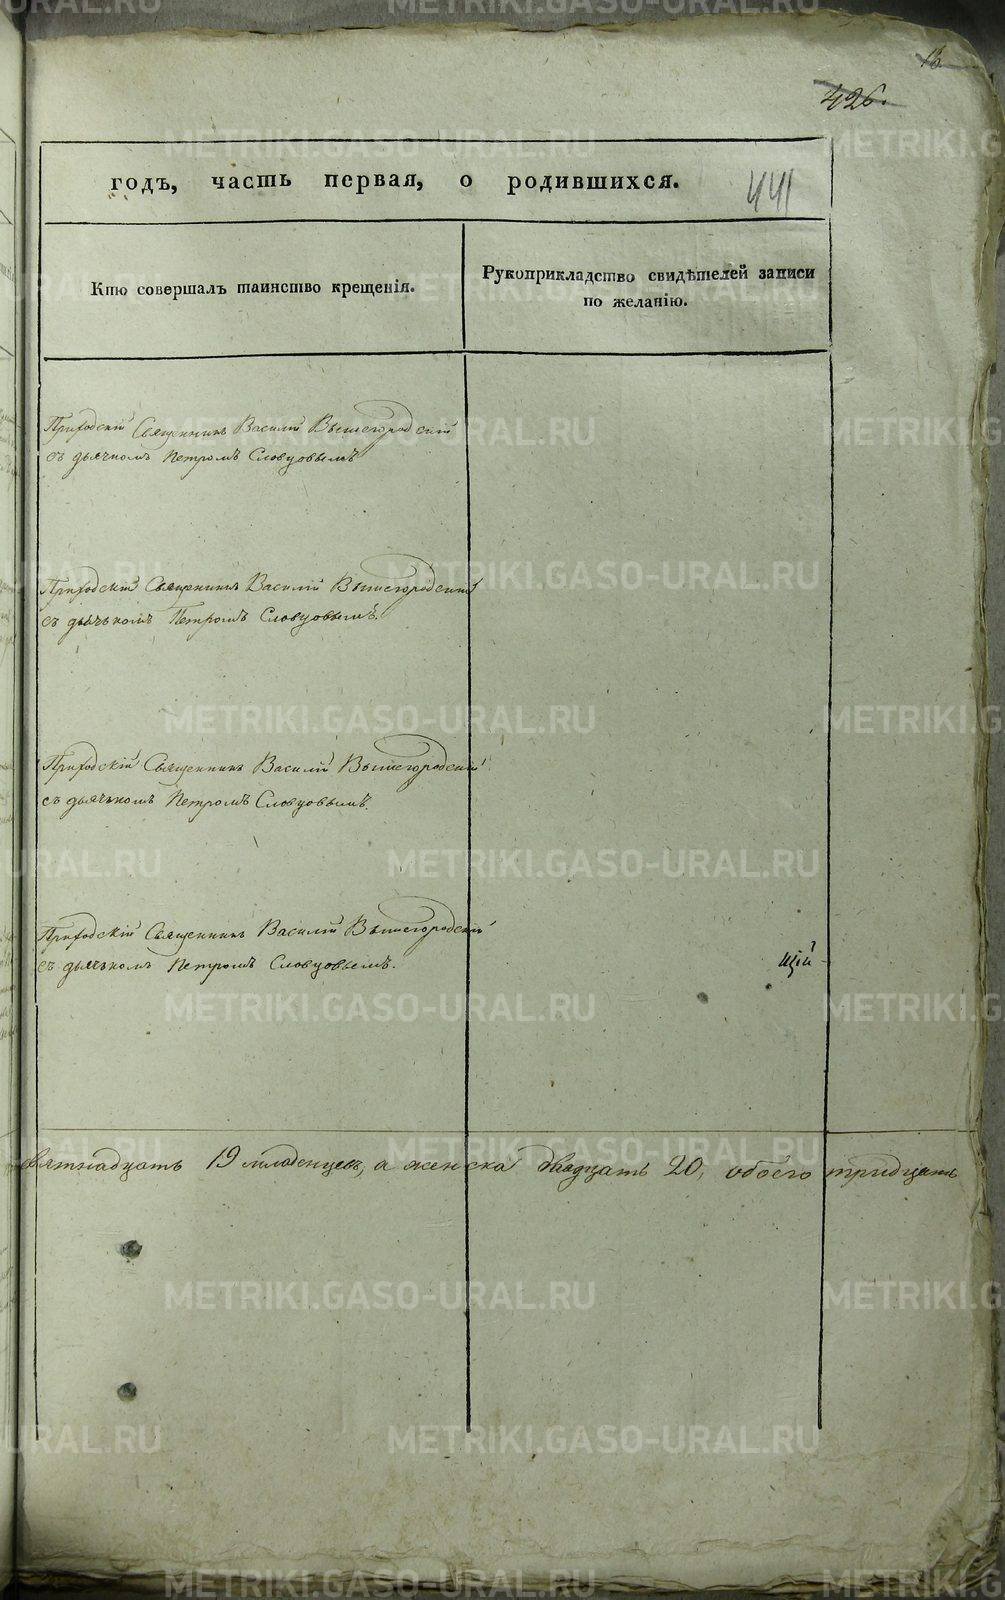 13
426.
годъ, часть первая, о родившихся.
441
Кто совершалъ таинство крещенія.
Рукоприкладство свидѣтелей записи
по желанію.
Приходскій Священникъ Василій Вышегородскій
съ дьячкомъ Петромъ Словцовымъ
Приходскій Священникъ Василій Вышегородскій
съ дьячькомъ Петромъ Словцовымъ.
Приходскій Священникъ Василій Вышегородскій
съ дьячькомъ Петромъ Словцовымъ.
Приходскій Священникъ Василій Вышегородскій
съ дьячькомъ Петромъ Словцовымъ.
щій
вятнадцать 19 младенцевъ, а женска двадцать 20, обоего тридцать
METRIKI.GASO-URAL.RU